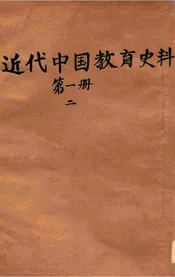 近代中国教育史料
第一册
二